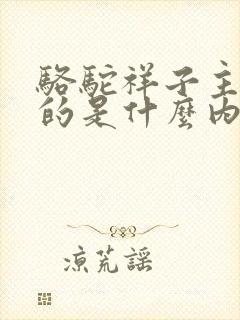 駱駝祥子主
的是什麼內
涼荒謠